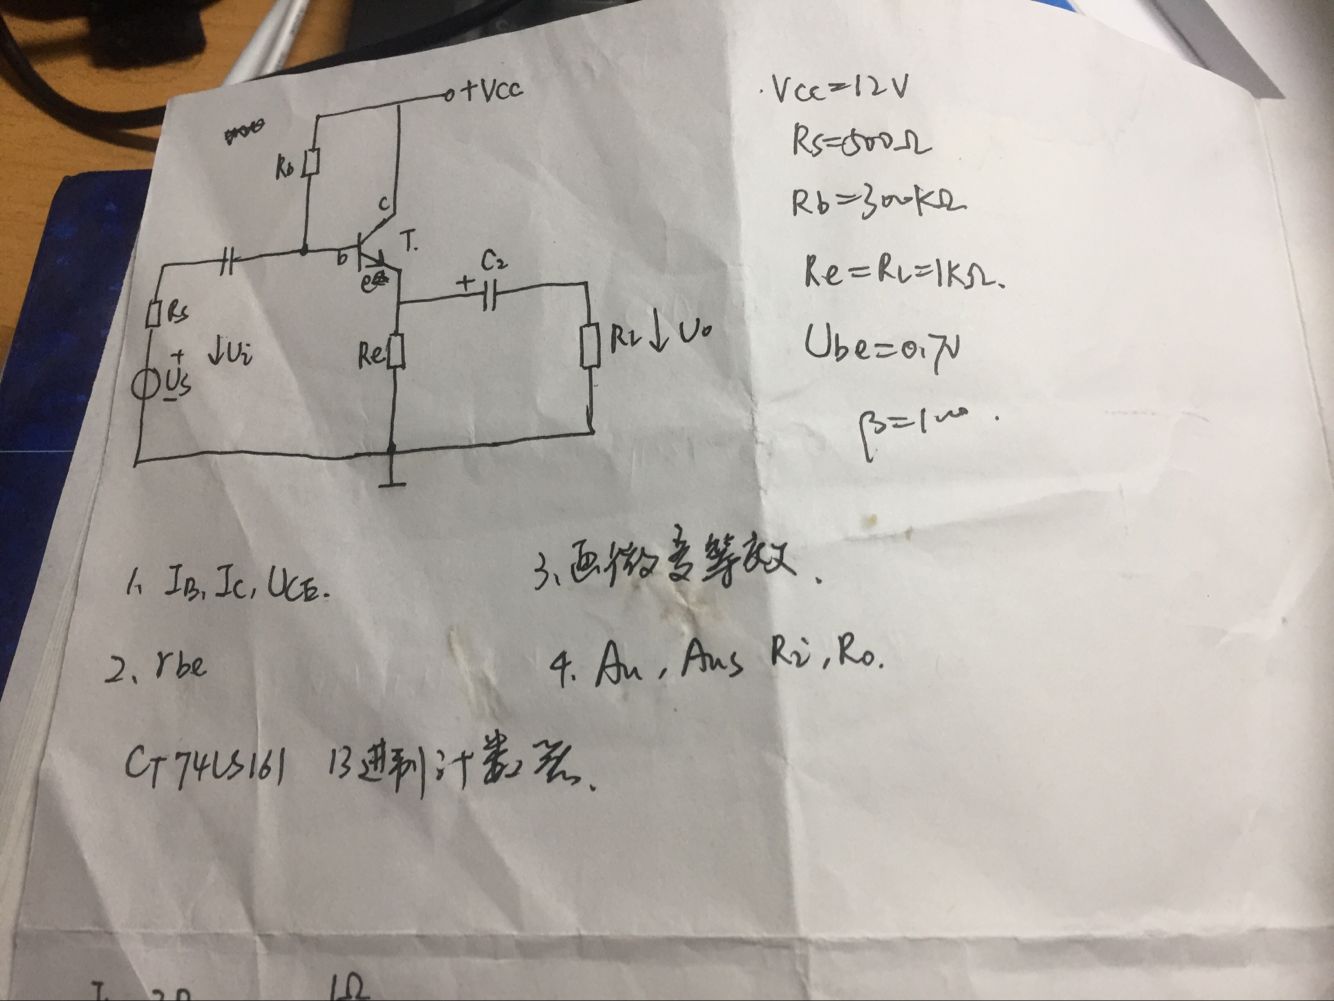 +Vcc
Rb
c
b
T.
e
C2
+
Rs
+
Us
-
↓Ui
Re
RL↓Uo
Vcc=12V
Rs=500Ω
Rb=300KΩ
Re=RL=1KΩ.
Ube=0.7V
β=100.
1、IB, Ic, UCE.
2、rbe
3、画微变等效.
4. Au, Aus Ri, Ro.
CT74LS161 13进制计数器.
1Ω